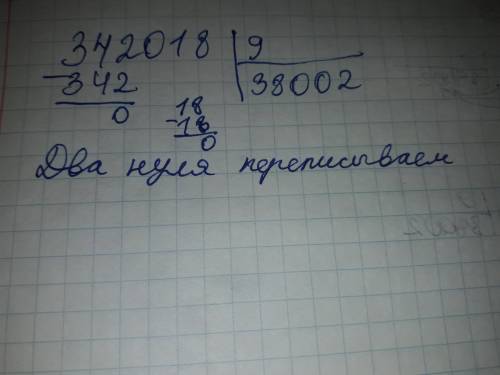 342018 | 9
-342 | 38002
0
-18
18
0
Два нуля переписываем